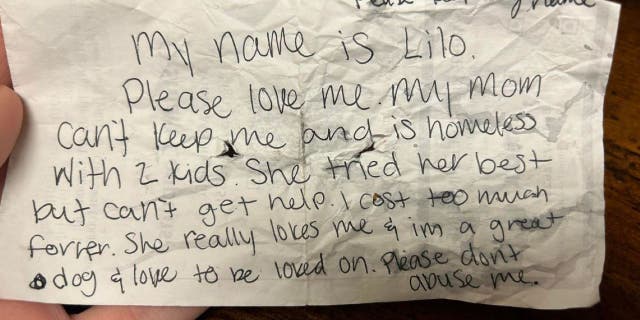 Please keep my name
My name is Lilo.
Please love me. My Mom
can't keep me and is homeless
with 2 kids. She tried her best
but can't get help. I cost too much
forrer. She really loves me & im a great
dog & love to be loved on. Please don't
abuse me.